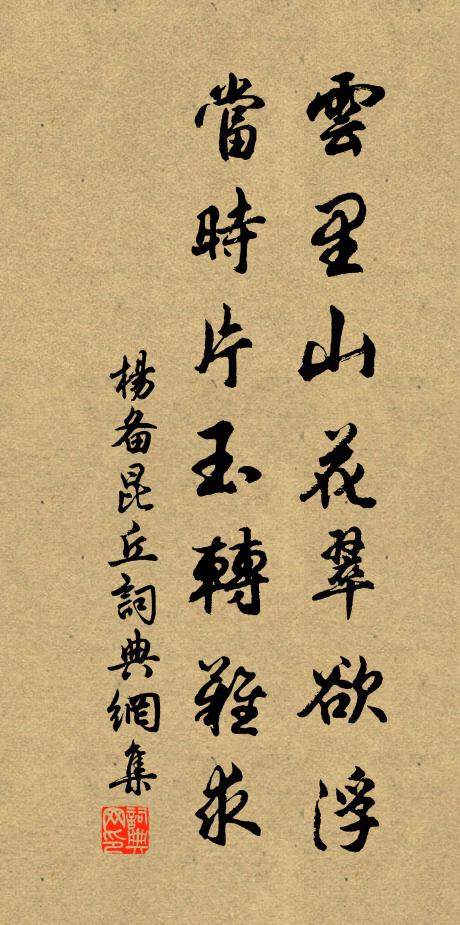 雲里山花翠欲浮
當時片玉轉難求
楊备昆丘詞典網集
詞典网印